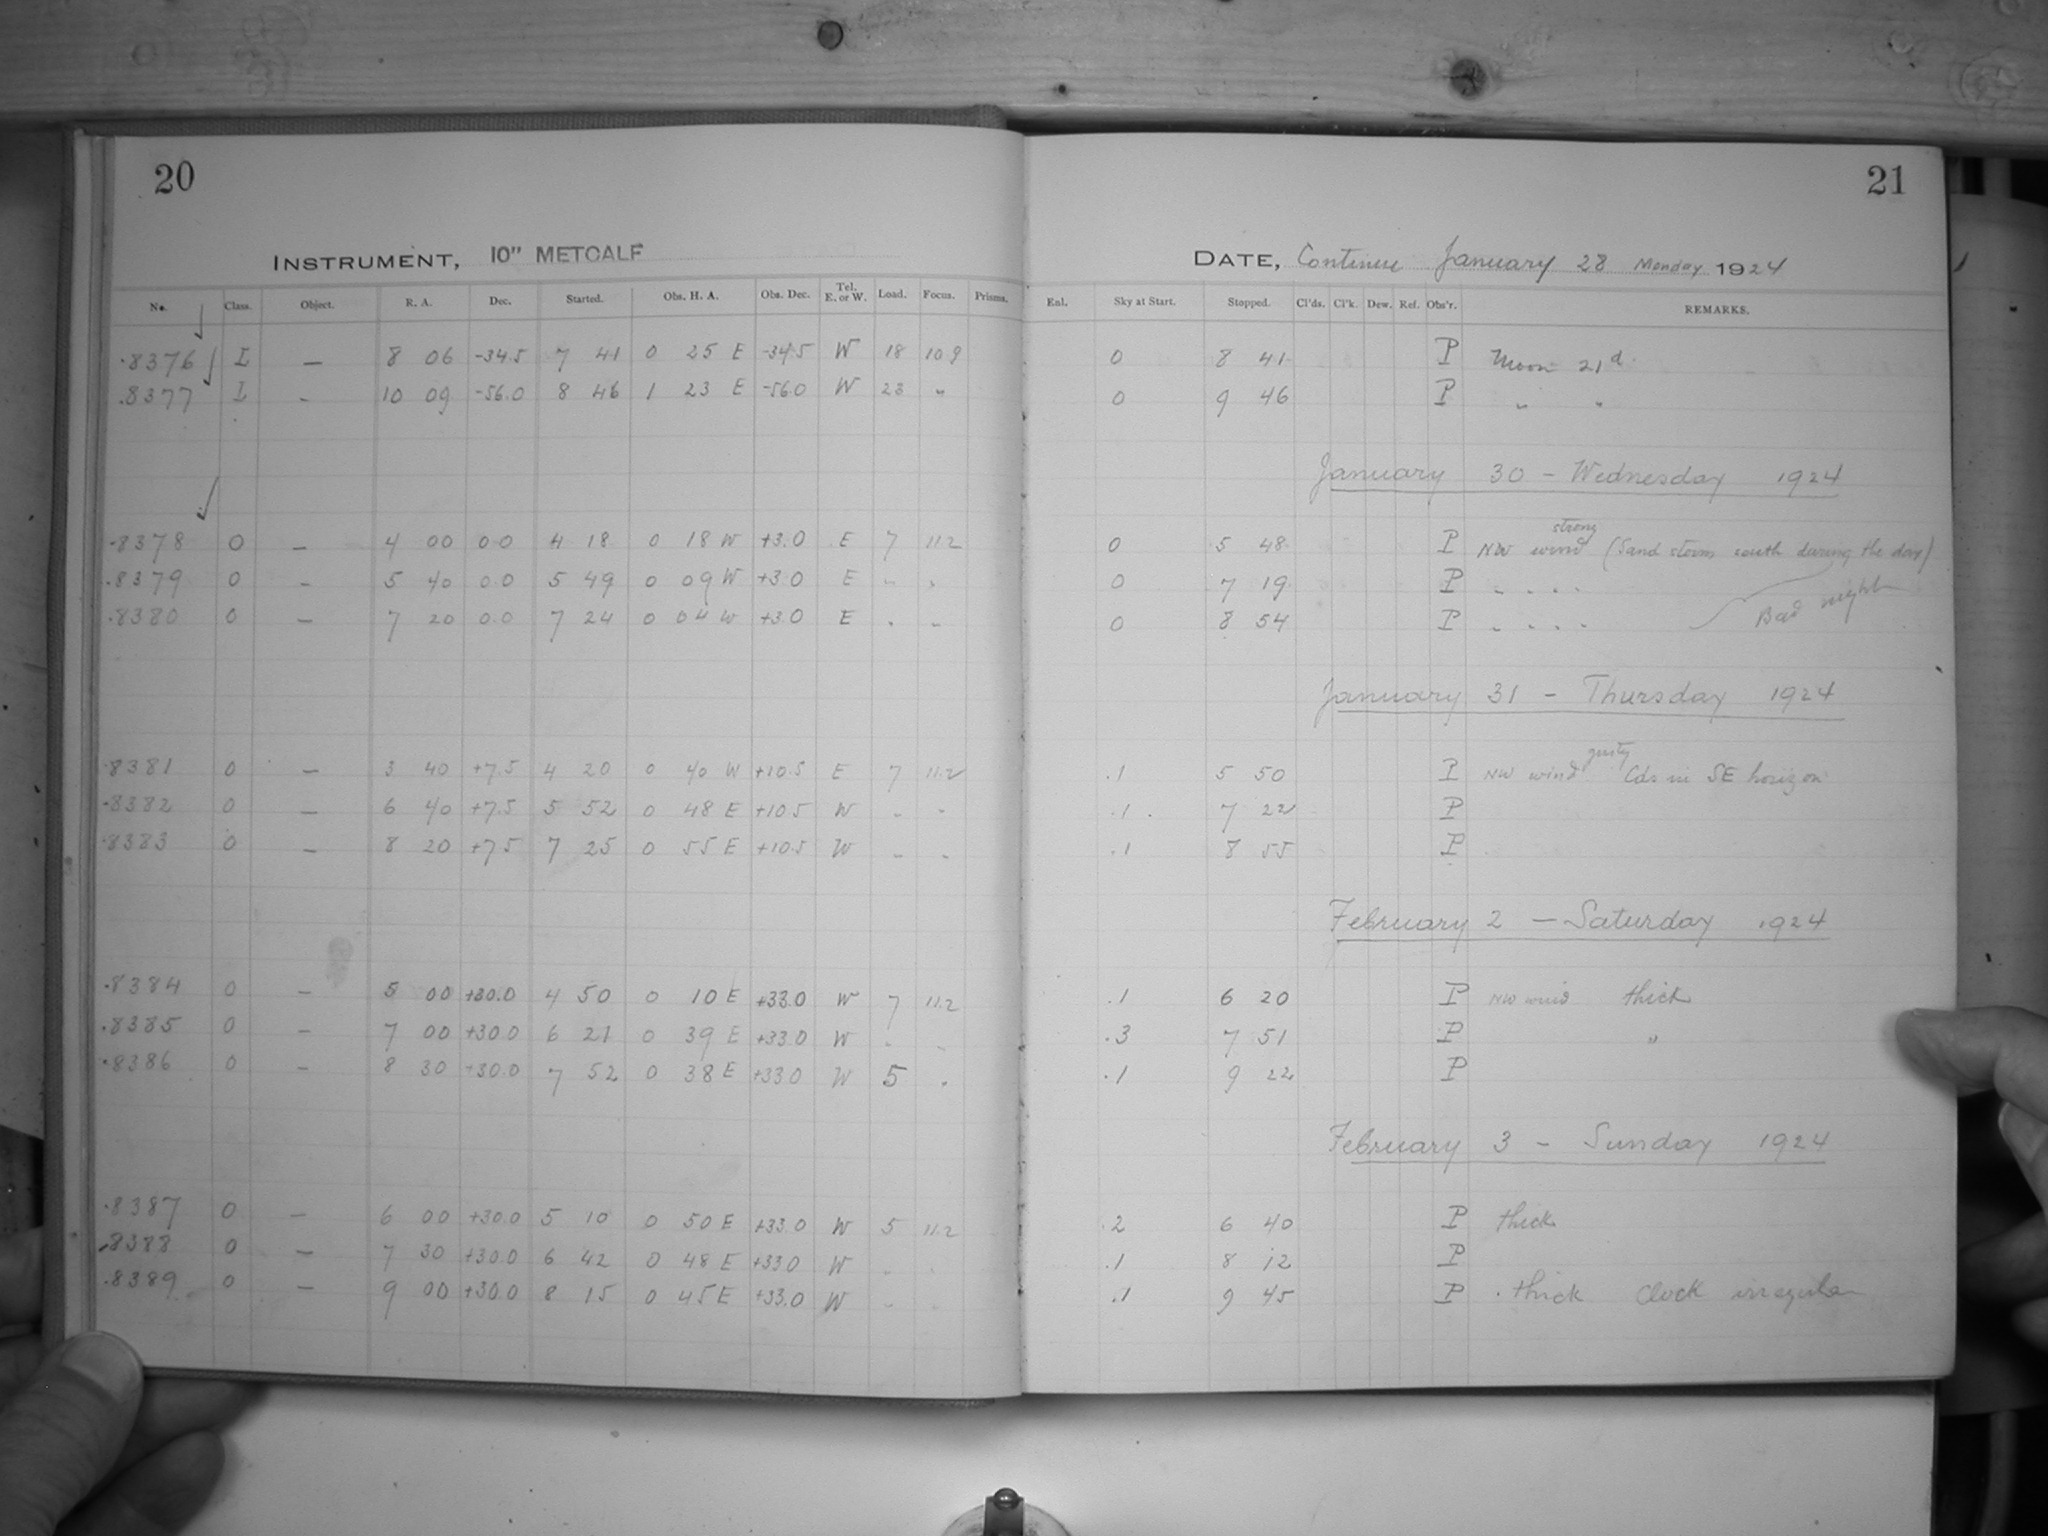 20
21
INSTRUMENT, 10" METCALF
DATE, Continue January 28 Monday 1924
No. Class. Object. R. A. Dec. Started. Obs. H. A. Obs. Dec. Tel. E. or W. Load. Focus. Prisms. Enl. Sky at Start. Stopped. Cl'ds. Cl'k. Dew. Ref. Obs'r. REMARKS.
.8376 I — 8 06 -34.5 7 41 0 25 E -34.5 W 18 10.9 0 8 41 P Moon 21d.
.8377 I - 10 09 -56.0 8 46 1 23 E -56.0 W 23 " 0 9 46 P " "
January 30 - Wednesday 1924
.8378 0 — 4 00 0.0 4 18 0 18 W +3.0 E 7 11.2 0 5 48 P NW strong wind (Sand storm south during the day)
.8379 0 — 5 40 0.0 5 49 0 09 W +3.0 E " " 0 7 19 P " " " "
.8380 0 — 7 20 0.0 7 24 0 04 W +3.0 E " " 0 8 54 P " " " " Bad night
January 31 - Thursday 1924
.8381 0 — 3 40 +7.5 4 20 0 40 W +10.5 E 7 11.2 .1 5 50 P NW wind gusty Cds in SE horizon
.8382 0 — 6 40 +7.5 5 52 0 48 E +10.5 W " " .1 7 22 P
.8383 0 — 8 20 +7.5 7 25 0 55 E +10.5 W " " .1 8 55 P
February 2 — Saturday 1924
.8384 0 — 5 00 +30.0 4 50 0 10 E +33.0 W 7 11.2 .1 6 20 P NW wind thick
.8385 0 — 7 00 +30.0 6 21 0 39 E +33.0 W " " .3 7 51 P "
.8386 0 — 8 30 +30.0 7 52 0 38 E +33.0 W 5 " .1 9 22 P
February 3 - Sunday 1924
.8387 0 — 6 00 +30.0 5 10 0 50 E +33.0 W 5 11.2 .2 6 40 P thick
.8388 0 — 7 30 +30.0 6 42 0 48 E +33.0 W " " .1 8 12 P
.8389 0 — 9 00 +30.0 8 15 0 45 E +33.0 W " " .1 9 45 P . thick Clock irregular